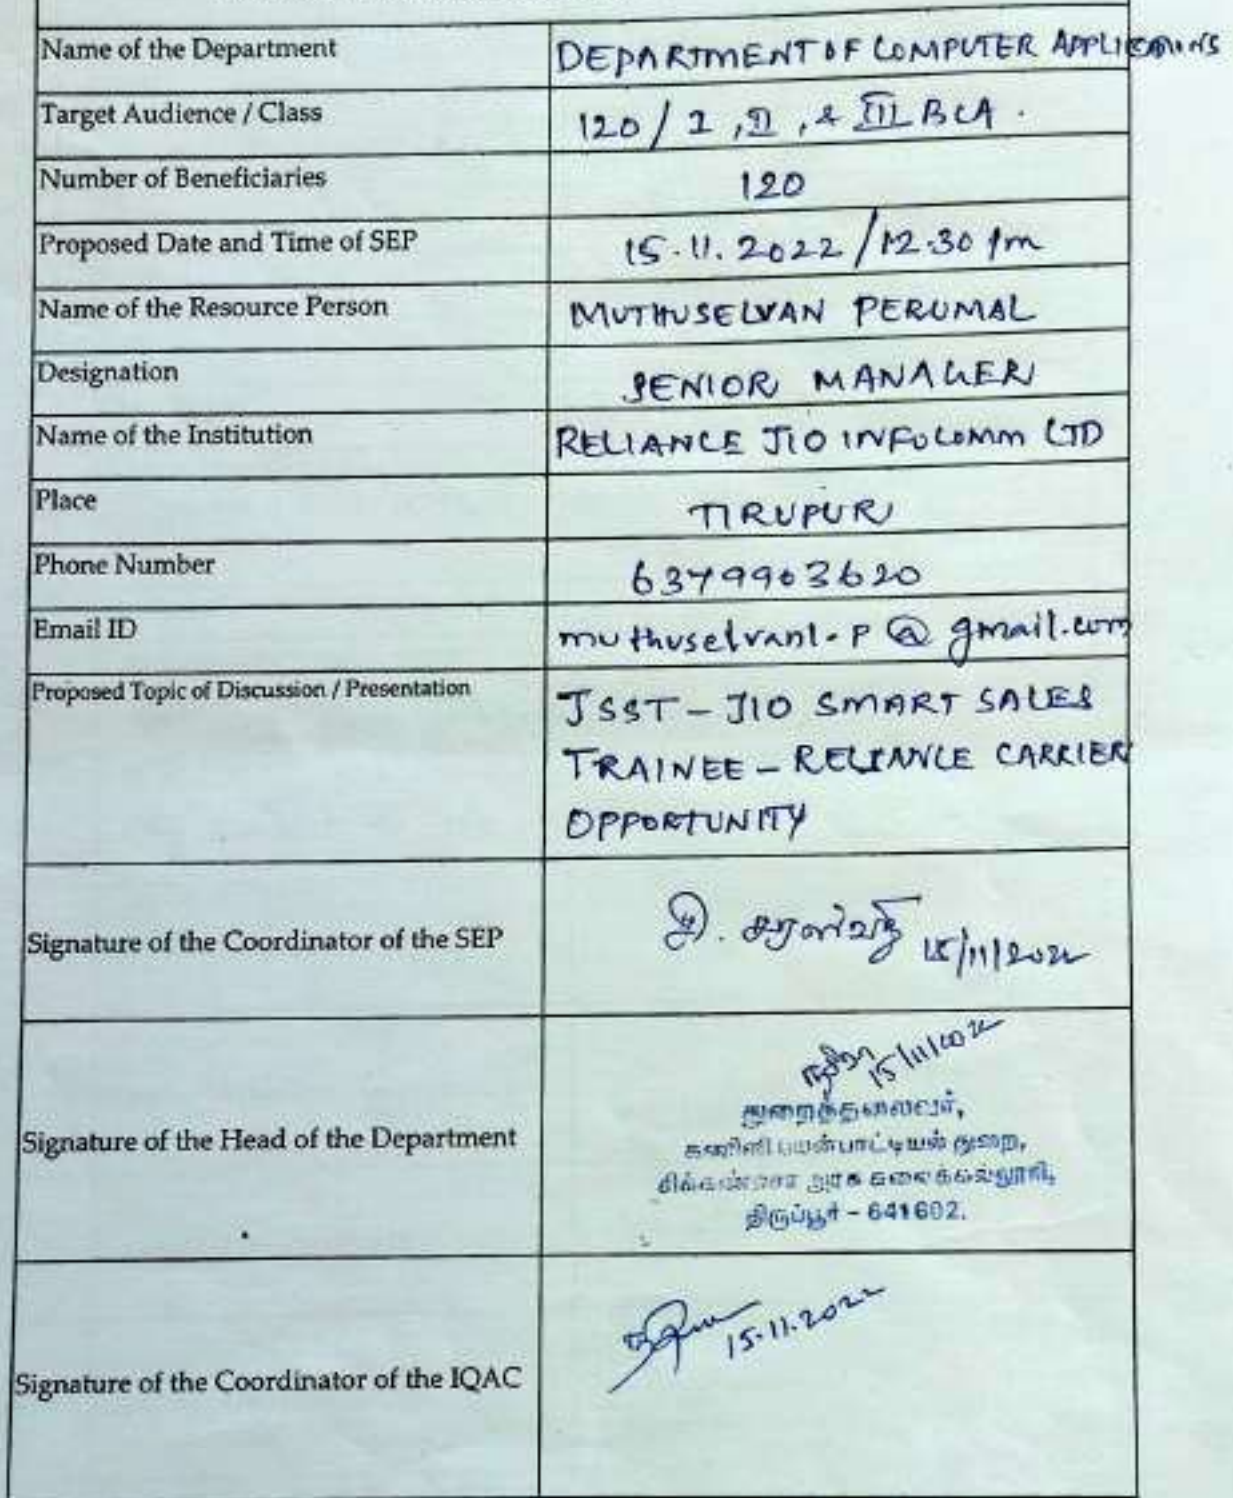 Name of the Department DEPARTMENT OF COMPUTER APPLICATIONS
Target Audience / Class 120 / I , II , & III BCA .
Number of Beneficiaries 120
Proposed Date and Time of SEP 15.11.2022 / 12.30 pm
Name of the Resource Person MUTHUSELVAN PERUMAL
Designation SENIOR MANAGER
Name of the Institution RELIANCE JIO INFOCOMM LTD
Place TIRUPUR
Phone Number 6379903620
Email ID muthuselvan1.p@gmail.com
Proposed Topic of Discussion / Presentation JSST - JIO SMART SALES
TRAINEE - RELIANCE CARRIER
OPPORTUNITY
Signature of the Coordinator of the SEP சரஸ்வதி 15/11/2022
15/11/2022
துறைத்தலைவர்,
Signature of the Head of the Department கணினி பயன்பாட்டியல் துறை,
சிக்கண்ணா அரசு கலைக்கல்லூரி,
திருப்பூர் - 641602.
15.11.2022
Signature of the Coordinator of the IQAC